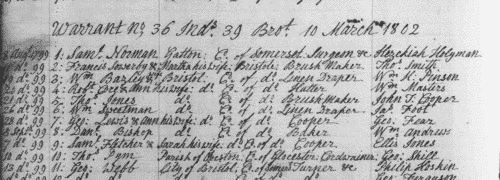 Warrant No 36 Inda. 39 Brot. 10 March 1802
1: Saml. Norman Yatton Co. of Somerset Surgeon & Hezekiah Holyman
2: Francis & Martha his wife Bristol Brush Maker Thos. Smith
3: Wm. Bazley Bristol Co. of do. Linen Draper Wm. K. Pinson
4: Robt. & Ann his wife do. Co. of do. Hatter Wm. Masters
5: Thos. Jones do. Co. of do. Brush Maker John T. Cooper
6: Wm. Sweetman do. Co. of do. Linen Draper Jas. Foot
7: Geo: Lewis & Ann his wife do. Co. of do. Cooper Geo: Fear
8: Danl. Bishop do. Co. of do. Baker Wm. Andrews
7 do. 99 9: Saml. Fletcher & Sarah his wife do. Co. of do. Cooper Ellis Jones
10 do. 99 10: Thos. Pym Parish of Co. of Glocester Cordwainer Geo: Shill
13 do. 99 11: Geo: Webb City of Bristol, Co. of same Turner &c Philip Hoskin
do. Geo: Ferguson